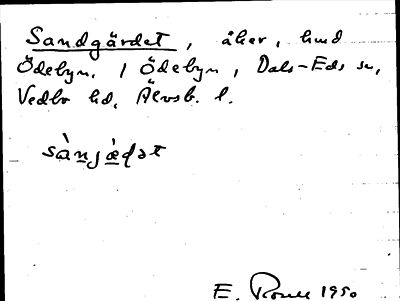 Sandgärdet, åker, hmd
Ödebyn, 1 Ödebyn, Dals-Eds sn,
Vedbo hd, Älvsb. l.
sànjæ̀dət
E. 1950